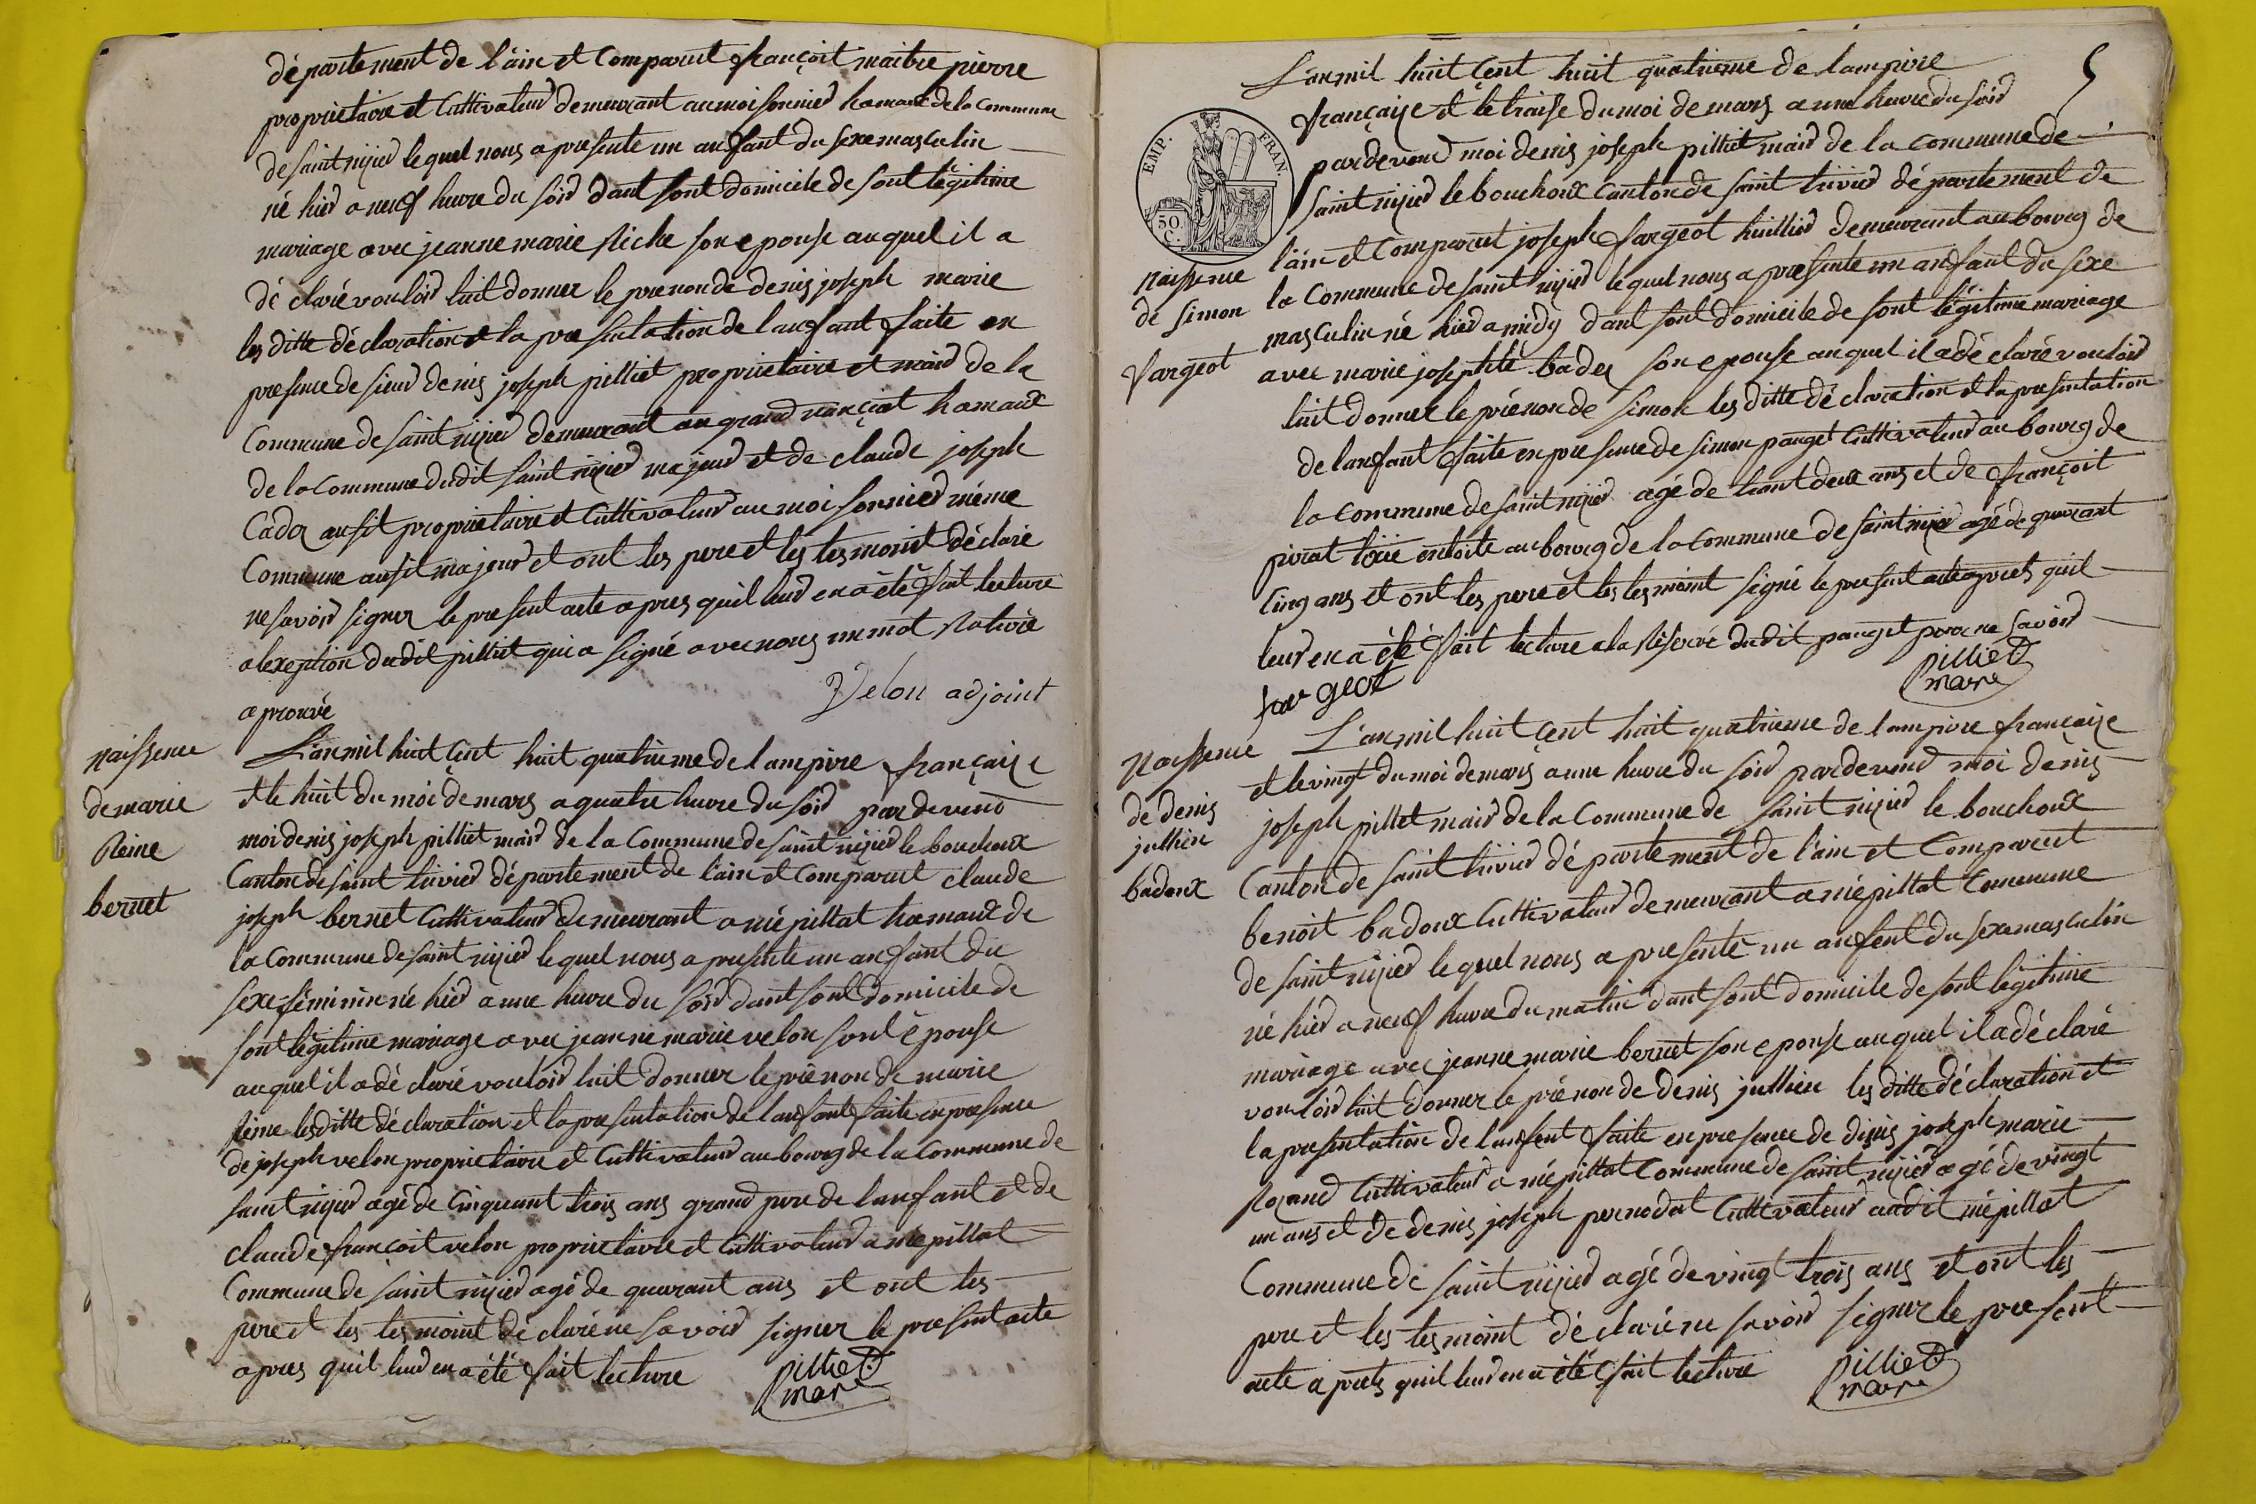 département de l'ain et Comparut françoit maitre pierre
proprietaire et Cultivateur demeurant au moisonnier hamaux de la Commune
de saint nizier lequel nous a presente un anfant du sexe masculin
né hier a neuf heure du soir dant sont domicile de sont légitime
mariage avec jeanne marie son epouse auquel il a
dé claré vouloir luit donner le prenon de denis joseph marie
les ditte déclaration et la presentation de lanfant faite en
presence de sieur denis joseph pilliet proprietaire et mair de la
Commune de saint nizier demeurant au grand hamaux
de la Commune dudit saint nizier majeur et de claude joseph
Cador ausit proprietaire et Cultivateur au moisonnier même
Commune ausit majeur et ont les pere et les tesmoint déclaré
ne savoir signer le present acte apres quil leur en a été fait lecture
a lexeption dudit pilliet qui a signé avec nous un mot
aprouvé
Velon adjoint
naissence
de marie
Reine
bernet
L'an mil huit çent huit quatrieme de l'ampire françaize
et le huit du moi de mars a quatre heure du soir pardevend
moi denis joseph pilliet mair de la Commune de saint nizier le bouchoux
Canton de saint trivier département de l'ain et Comparut claude
joseph bernet Cultivateur demeurant a mépillat hamaux de
la Commune de saint nizier lequel nous a presente un anfant du
sexe féminin né hier a une heure du soir dant sont domicile de
sont légitime mariage avec jeanne marie velon sont épouse
auquel il a dé claré vouloir luit donner le prénon de marie
reine les ditte déclaration et la presentation de lanfant faite en presence
de joseph velon proprietaire et Cultivateur au bourg de la Commune de
saint nizier agé de Cinquant trois ans grand pere de lanfant et de
claude françoit velon proprietaire et Cultivateur a mépillat
Commune de saint nizier agé de quarant ans et ont les
pere et les tesmoint déclaré ne savoir signer le present acte
apres quil leur en a été fait lecture
pilliet
maire
5
EMP. FRAN.
50 C.
L'an mil huit çent huit quatrieme de lampire
françaize et le traise du moi de mars a une heure du soir
pardevend moi denis joseph pilliet mair de la Commune de
saint nizier le bouchoux Canton de saint trivier département de
l'ain et Comparut joseph fargeot huillier demeurant au bourg de
la Commune de saint nizier lequel nous a presente un anfant du sexe
masculin né hier a midy dant sont domicile de sont légitime mariage
avec marie josephte badez son epouse auquel il a dé claré vouloir
luit donner le prénon de simon les ditte déclaration et la presentation
de lanfant faite en presence de simon pauget Cultivateur au bourg de
la Commune de saint nizier agé de trant deux ans et de françoit
au bourg de la Commune de saint nizier agé de quarant
Cinq ans et ont les pere et les tesmoint signé le present acte apret quil
leur en a été fait lecture a la réserve dudit pauget pour ne savoir
naissence
de simon
fargeot
fargeot
pilliet
maire
Naissence
de denis
jullien
badoux
L'an mil huit çent huit quatrieme de lampire françaize
et le vingt du moi de mars a une heure du soir pardevend moi denis
joseph pilliet mair de la Commune de saint nizier le bouchoux
Canton de saint trivier département de l'ain et Comparut
benoit badoux Cultivateur demeurant a mépillat Commune
de saint nizier lequel nous a presente un anfent du sexe masculin
né hier a neuf heure du matin dant sont domicile de sont legitime
mariage avec jeanne marie bernet son epouse auquel il a dé claré
vouloir luit donner le prénon de denis jullien les ditte déclaration et
la presentation de lanfent faite en presence de denis joseph marie
Cultivateur a mépillat Commune de saint nizier agé de vingt
un ans et de denis joseph pernodat Cultivateur audit mépillat
Commune de saint nizier agé de vingt trois ans et ont les
pere et les tesmoint déclaré ne savoir signer le present
acte aprets quil leur en a été fait lecture
pilliet
maire